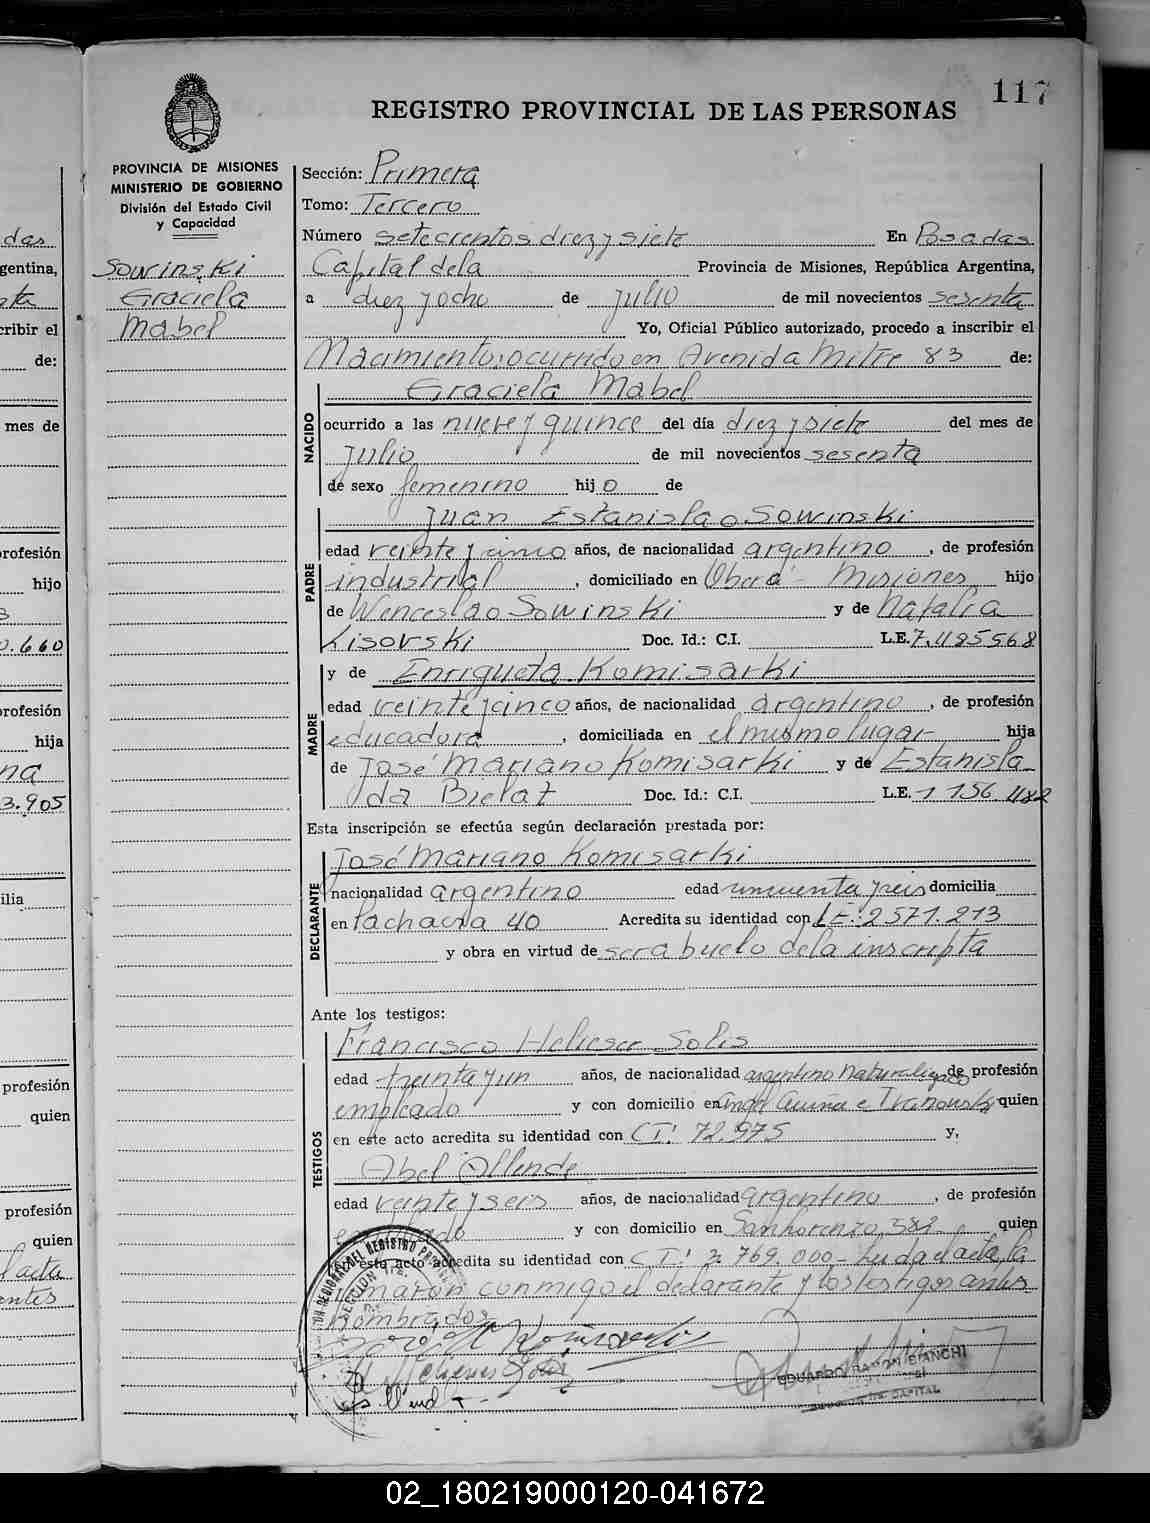 117
REGISTRO PROVINCIAL DE LAS PERSONAS
PROVINCIA DE MISIONES
MINISTERIO DE GOBIERNO
División del Estado Civil
y Capacidad
Sowinski
Graciela
Mabel
Sección: Primera
Tomo: Tercero
Número setecientos diez y siete En Posadas
Capital de la Provincia de Misiones, República Argentina,
a diez y ocho de julio de mil novecientos sesenta
Yo, Oficial Público autorizado, procedo a inscribir el
Nacimiento: ocurrido en Avenida Mitre 83 de:
Graciela Mabel
NACIDO
ocurrido a las nueve y quince del día diez y siete del mes de
Julio de mil novecientos sesenta
de sexo femenino hijo de
Juan Estanislao Sowinski
PADRE
edad veinte y cinco años, de nacionalidad argentino, de profesión
industrial, domiciliado en Oberá - Misiones hijo
de Wenceslao Sowinski y de Natalia
Lisovski Doc. Id.: C.I. L.E. 7.485568
y de Enriqueta Komisarki
MADRE
edad veinte y cinco años, de nacionalidad argentino, de profesión
educadora, domiciliada en el mismo lugar hija
de José Mariano Komisarki y de Estanisla
da Bielat Doc. Id.: C.I. L.E. 1 156 482
Esta inscripción se efectúa según declaración prestada por:
José Mariano Komisarki
DECLARANTE
nacionalidad argentino edad cincuenta y seis domicilia
en la chacra 40 Acredita su identidad con L.E.: 2571.213
y obra en virtud de ser abuelo de la inscripta
Ante los testigos:
Francisco Helieser Solis
TESTIGOS
edad treinta y un años, de nacionalidad argentino naturalizado de profesión
empleado y con domicilio en quien
en este acto acredita su identidad con CI: 72.975 y,
Abel Allende
edad veinte y seis años, de nacionalidad argentino, de profesión
y con domicilio en San Lorenzo 382 quien
en este acto acredita su identidad con CI: 2.769.000 - Leída el acta, la
firmaron conmigo el declarante y los testigos antes
nombrados
EDUARDO RAMON BIANCHI
CAPITAL
das
gentina,
cribir el
de:
mes de
profesión
hijo
0.660
profesión
hija
na
3.905
ilia
profesión
quien
profesión
quien
acta
02_180219000120-041672